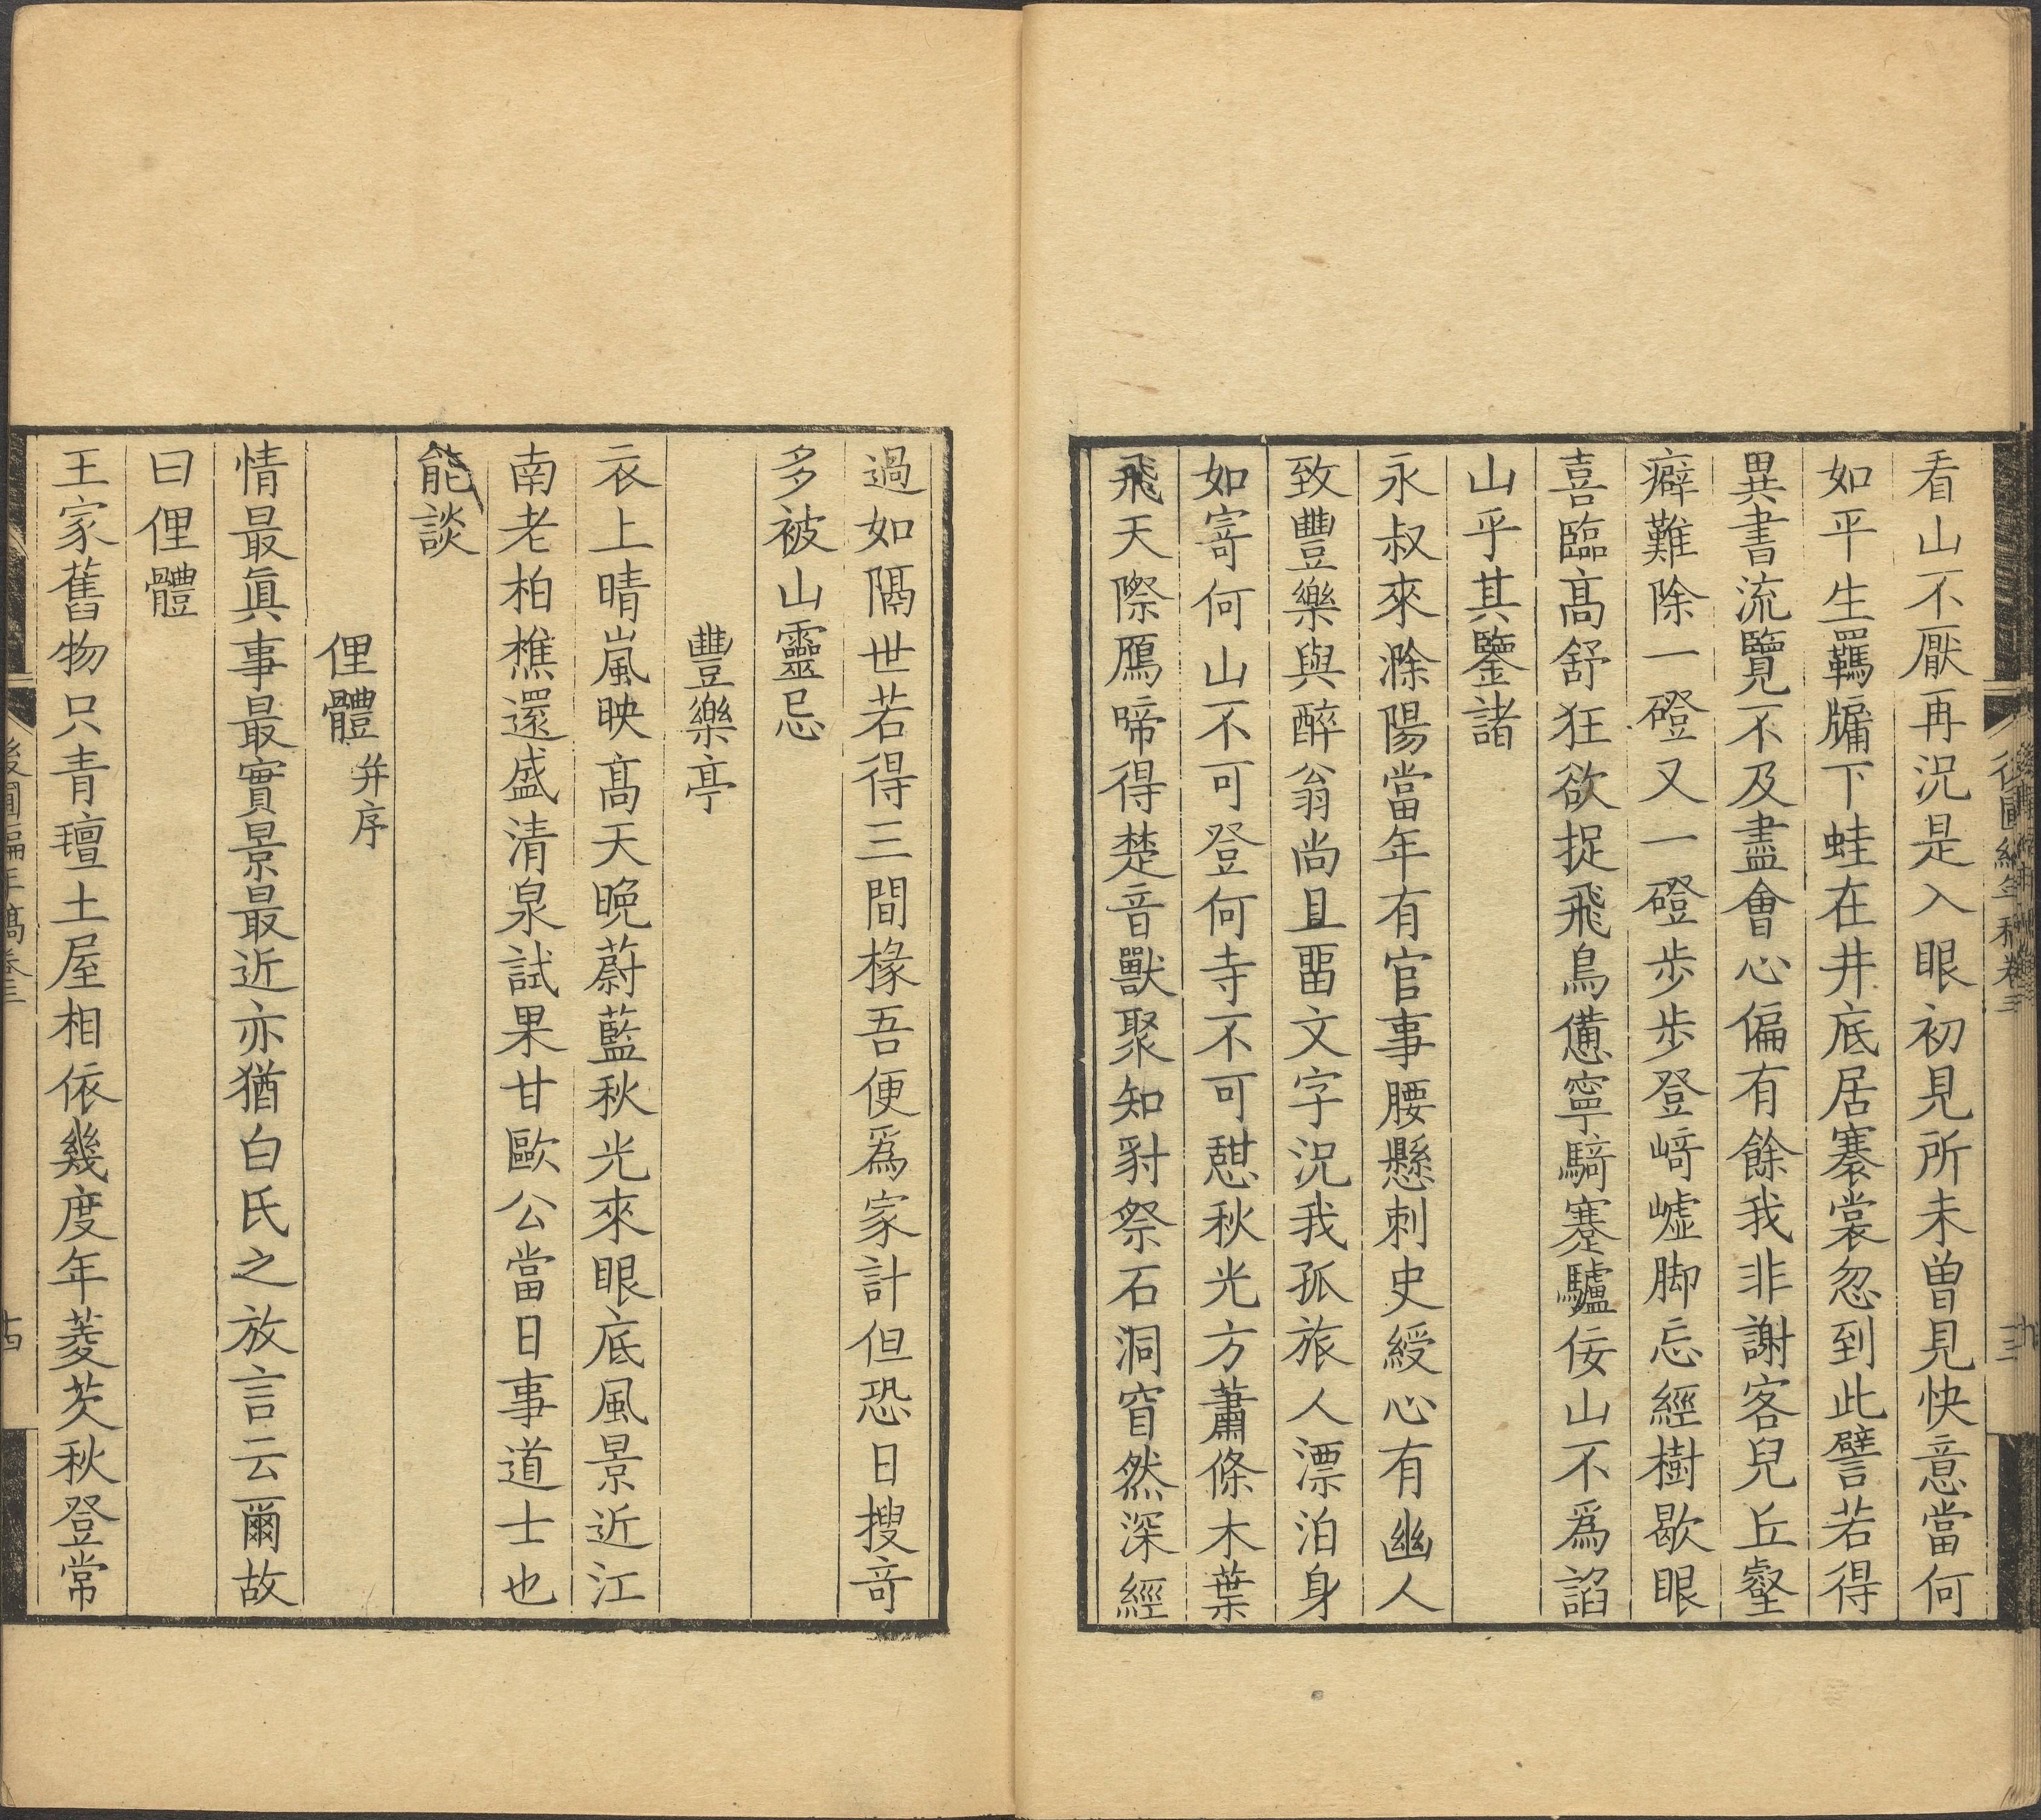 看山不厭再況是入眼初見所未曾見快意當何
如平生羈牖下蛙在井底居褰裳忽到此譬若得
異書流覽不及盡會心偏有餘我非謝客兒丘壑
癖難除一磴又一磴步步登崎嶇脚忘經樹歇眼
喜臨高舒狂欲捉飛鳥憊寧騎蹇驢佞山不爲諂
山乎其鑒諸
永叔來滁陽當年有官事腰懸刺史綬心有幽人
致豐樂與醉翁尚且畱文字況我孤旅人漂泊身
如寄何山不可登何寺不可憇秋光方蕭條木葉
飛天際鴈啼得楚音獸聚知豺祭石洞窅然深經
過如隔世若得三間椽吾便爲家計但恐日搜奇
多被山靈忌
豐樂亭
衣上晴嵐映高天晚蔚藍秋光來眼底風景近江
南老柏樵還盛清泉試果甘歐公當日事道士也
能談
俚體并序
情最眞事最實景最近亦猶白氏之放言云爾故
曰俚體
王家舊物只青氊土屋相依幾度年菱芡秋登常
後圃編年稿卷三